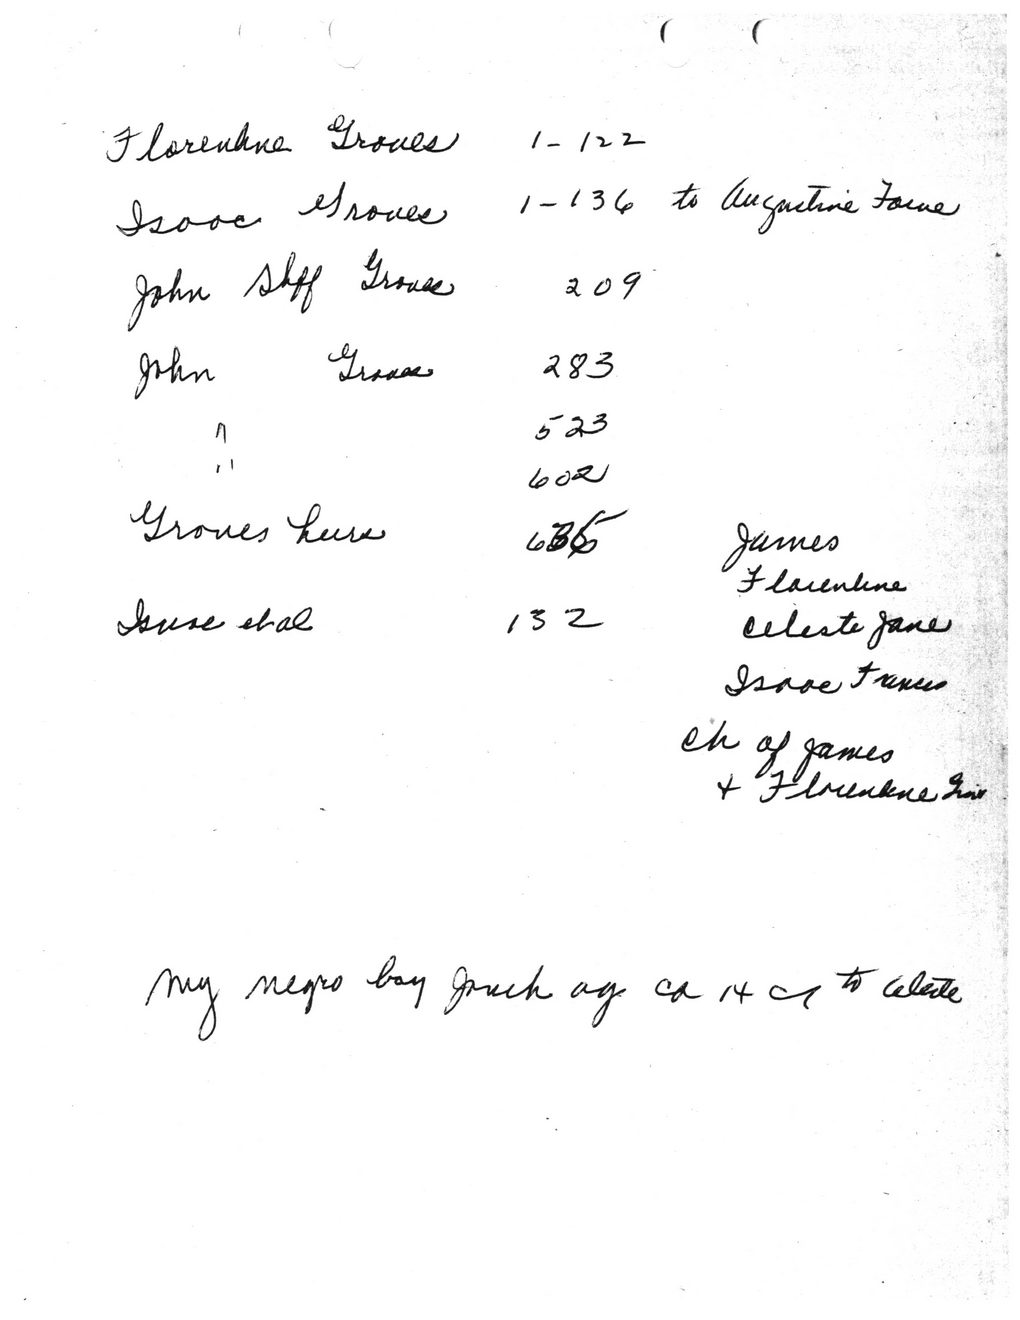 Florentine Groves 1-122
Isaac Groves 1-136 to Augustine
John Shff Groves 209
John Groves 283
" 523
" 602
Groves heirs
James
Florentine
Isaac et al 132 Celeste Jane
Isaac Francis
ch of James
& Florentine
My negro boy ag ca 14 to Celeste